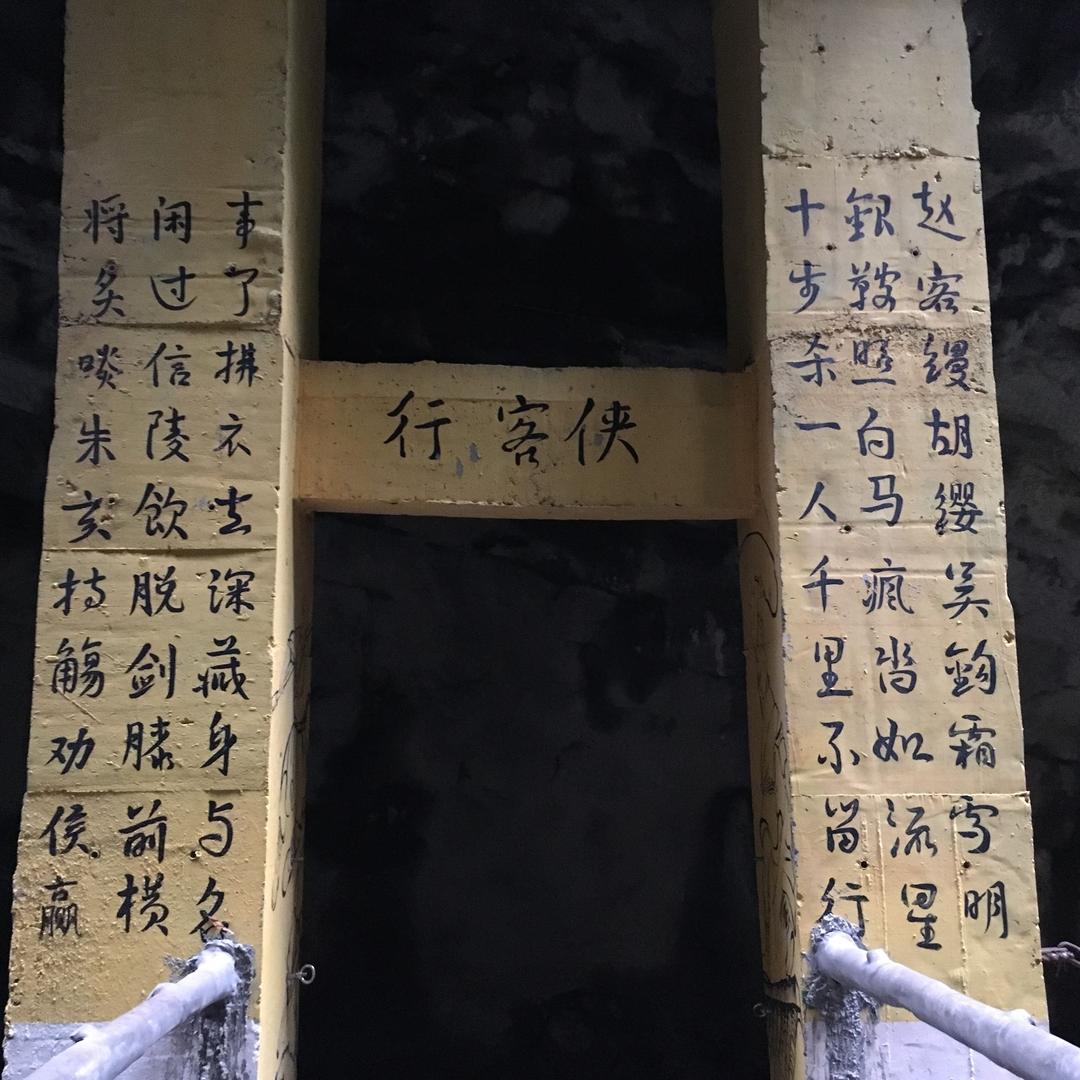 侠客行
赵客缦胡缨吴鈞霜雪明
銀鞍照白马瘋沓如流星
十步杀一人千里不留行
事了拂衣去深藏身与名
闲过信陵飲脱剑膝前横
将炙啖朱亥持觴劝侯赢